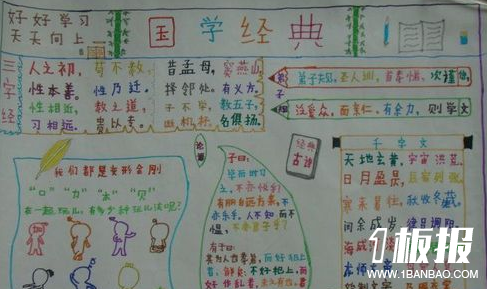 好好学习
天天向上
国学经典
三字经
人之初,
性本善。
性相近,
习相远。
苟不教,
性乃迁。
教之道,
贵以专。
昔孟母,
择邻处。
子不学,
窦燕山,
有义方。
教五子,
名俱扬。
弟子规
弟子规,圣人训,首孝悌,次谨信。
泛爱众,而亲仁,有余力,则学文
我们都是变形金刚
"口" "力" "木" "贝"
在一起玩儿,有多少种玩儿法呢?
论语
子曰:
学而时习
之,不亦说乎
有朋自远方来,不
亦乐乎,人不知而不
愠,不亦君子乎?
有子曰:
经典
古诗
千字文
天地玄黄,宇宙洪荒,
日月盈昃,辰宿列张,
寒来暑往,秋收冬藏,
闰余成岁,律吕调阳,
板报
WWW.1BANBAO.COM